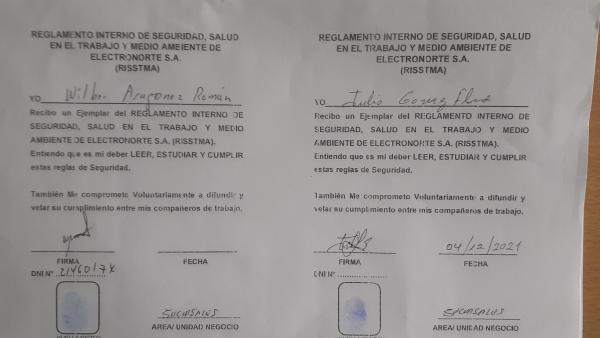 REGLAMENTO INTERNO DE SEGURIDAD, SALUD
EN EL TRABAJO Y MEDIO AMBIENTE DE
ELECTRONORTE S.A.
(RISSTMA)
YO Wilber Román
Recibo un Ejemplar del REGLAMENTO INTERNO DE
SEGURIDAD, SALUD EN EL TRABAJO Y MEDIO
AMBIENTE DE ELECTRONORTE S.A. (RISSTMA).
Entiendo que es mi deber LEER, ESTUDIAR Y CUMPLIR
estas reglas de Seguridad.
También Me comprometo Voluntariamente a difundir y
velar su cumplimiento entre mis compañeros de trabajo.
FIRMA
FECHA
DNI N°
SUCURSALES
AREA/ UNIDAD NEGOCIO
REGLAMENTO INTERNO DE SEGURIDAD, SALUD
EN EL TRABAJO Y MEDIO AMBIENTE DE
ELECTRONORTE S.A.
(RISSTMA)
YO Julio
Recibo un Ejemplar del REGLAMENTO INTERNO DE
SEGURIDAD, SALUD EN EL TRABAJO Y MEDIO
AMBIENTE DE ELECTRONORTE S.A. (RISSTMA).
Entiendo que es mi deber LEER, ESTUDIAR Y CUMPLIR
estas reglas de Seguridad.
También Me comprometo Voluntariamente a difundir y
velar su cumplimiento entre mis compañeros de trabajo.
04/12/2021
FIRMA
FECHA
DNI N°
SUCURSALES
AREA/ UNIDAD NEGOCIO